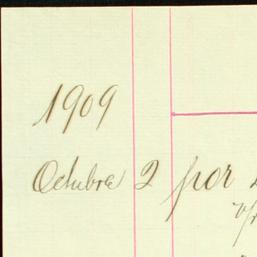 1909
Octubre 2 por